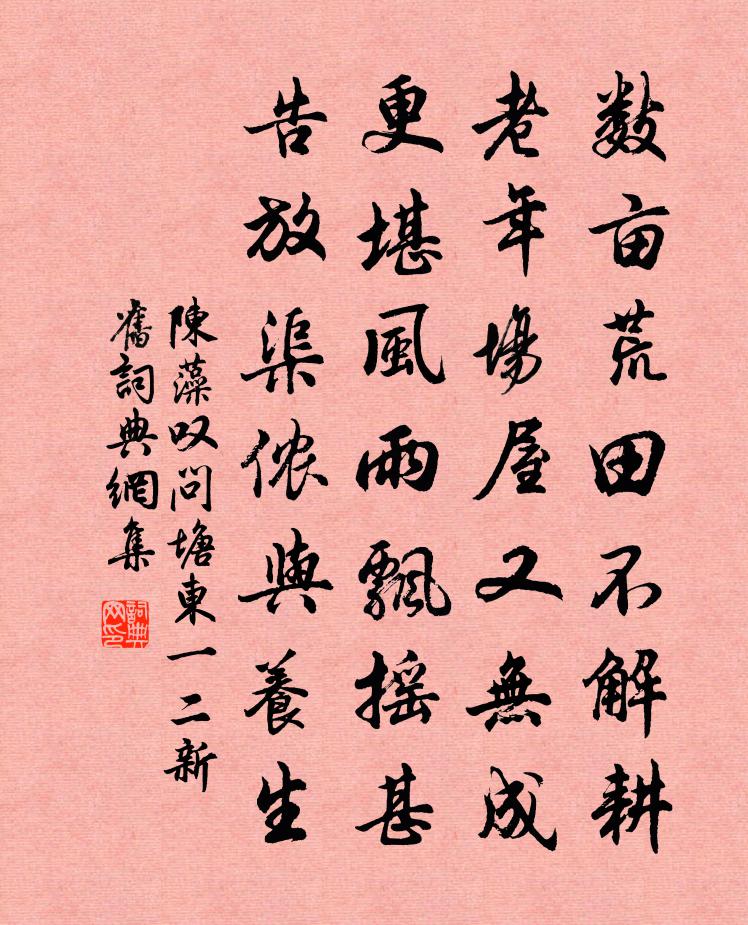 数亩荒田不解耕
老年場屋又無成
更堪風雨飄摇甚
告放渠侬與養生
陳藻叹问塘東一二新
舊詞典網集
詞典網印